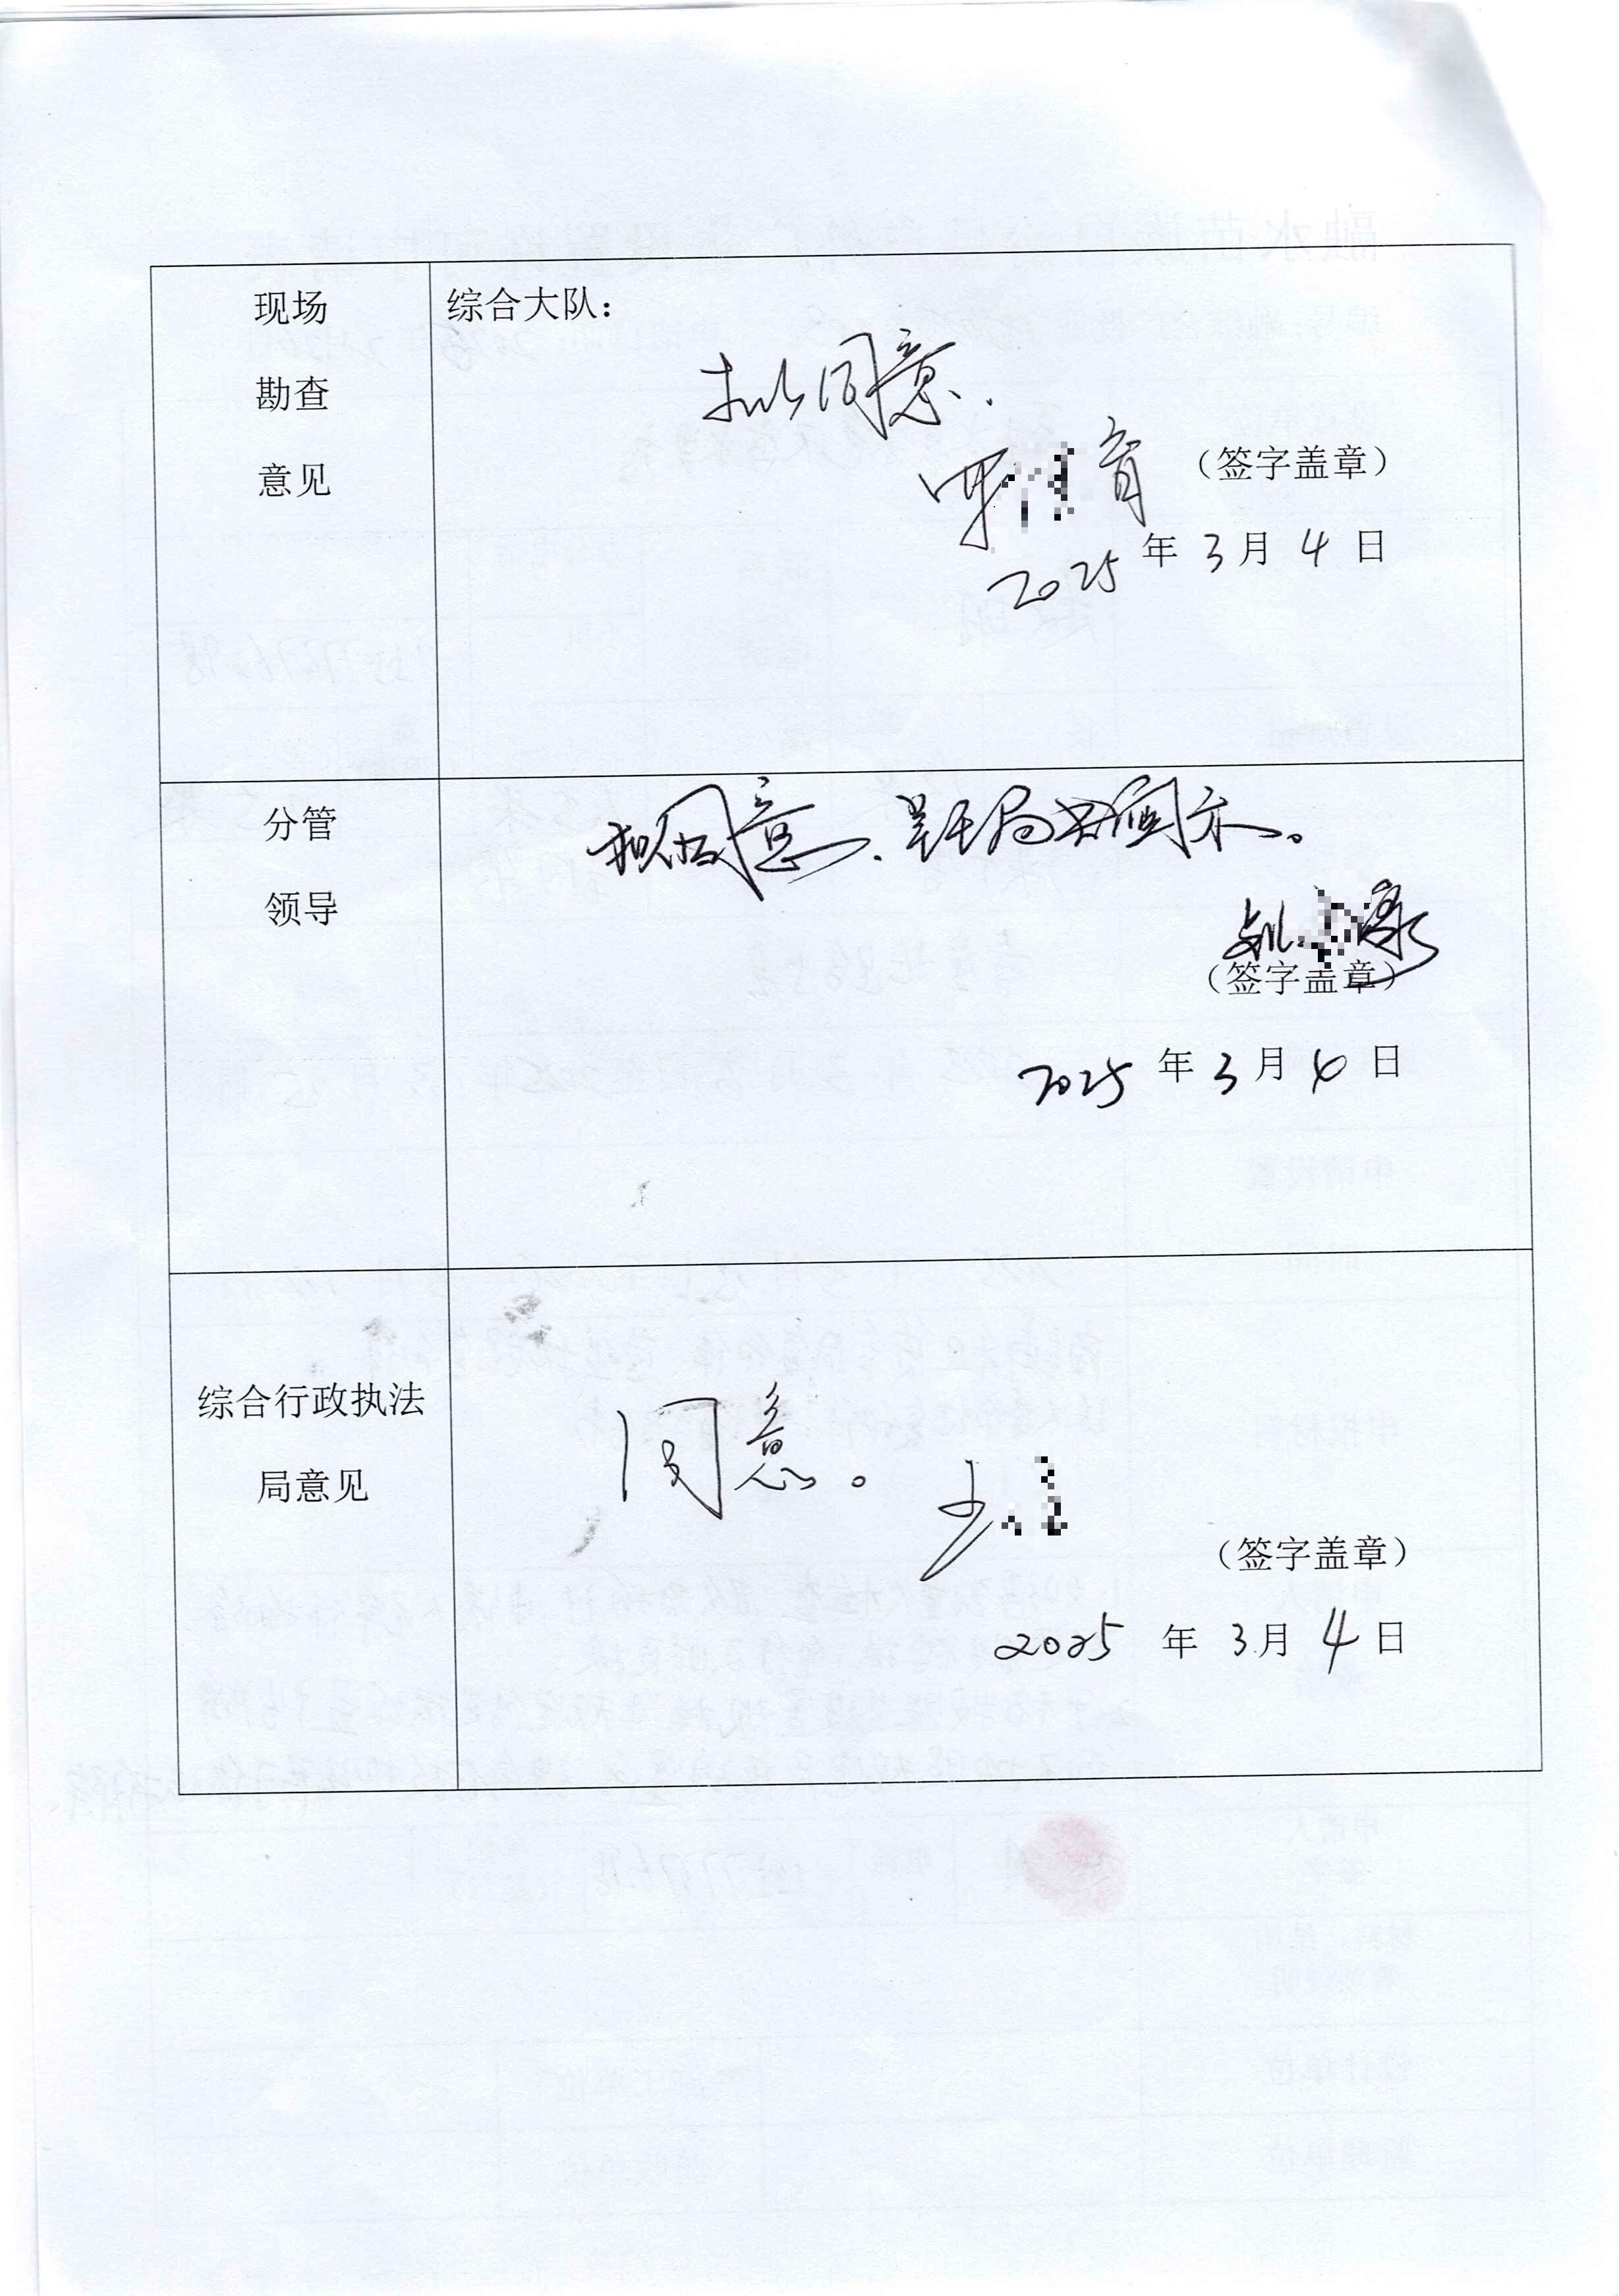 现场
勘查
意见
综合大队：
拟同意.
（签字盖章）
2025 年 3 月 4 日
分管
领导
拟同意、呈王局
（签字盖章）
2025 年 3 月 4 日
综合行政执法
局意见
同意。
（签字盖章）
2025 年 3 月 4 日